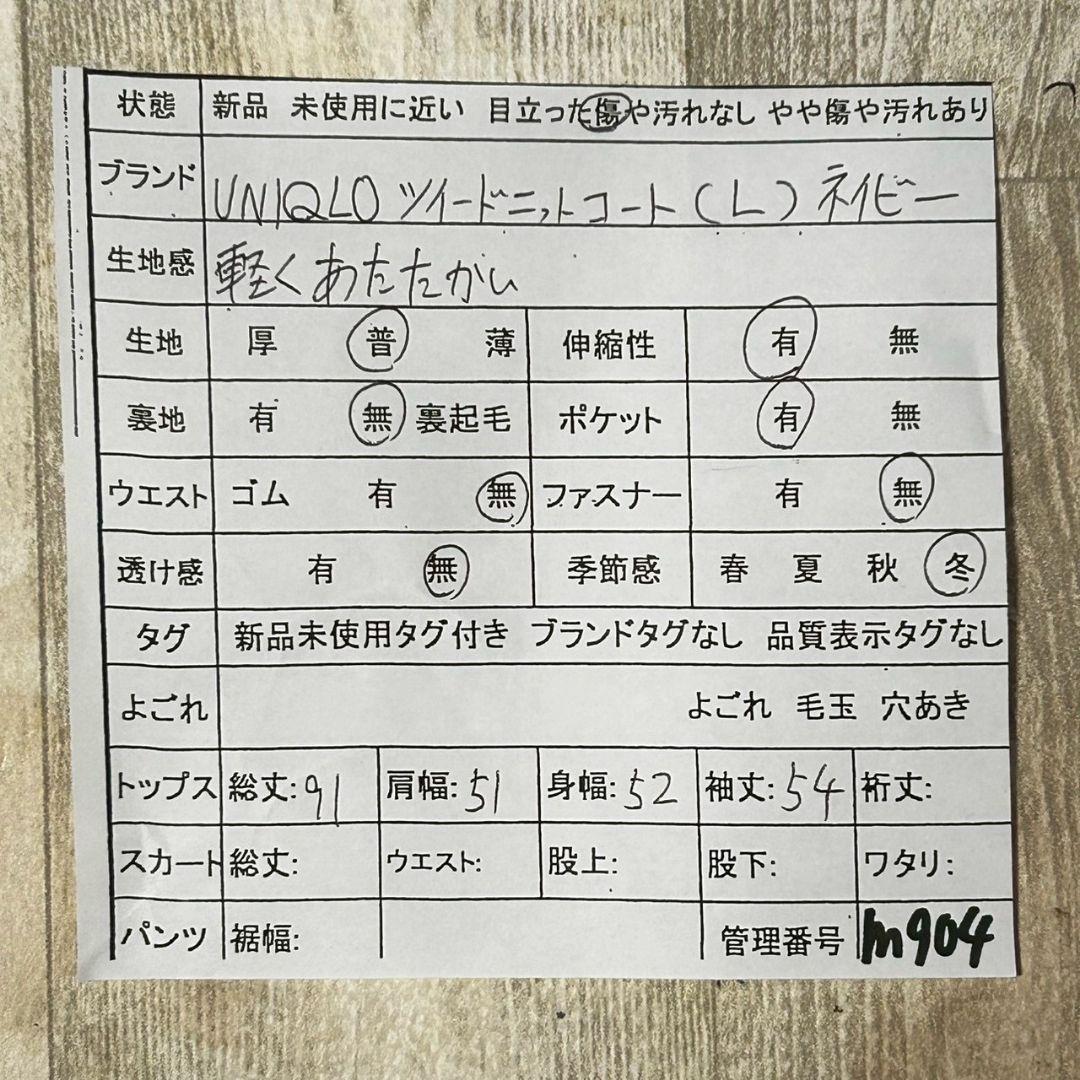 状態 新品 未使用に近い 目立った傷や汚れなし やや傷や汚れあり
ブランド UNIQLO ツイードニットコート (L) ネイビー
生地感 軽くあたたかい
生地 厚 普 薄 伸縮性 有 無
裏地 有 無 裏起毛 ポケット 有 無
ウエスト ゴム 有 無 ファスナー 有 無
透け感 有 無 季節感 春 夏 秋 冬
タグ 新品未使用タグ付き ブランドタグなし 品質表示タグなし
よごれ よごれ 毛玉 穴あき
トップス 総丈:91 肩幅:51 身幅:52 袖丈:54 裄丈:
スカート 総丈: ウエスト: 股上: 股下: ワタリ:
パンツ 裾幅: 管理番号 m904